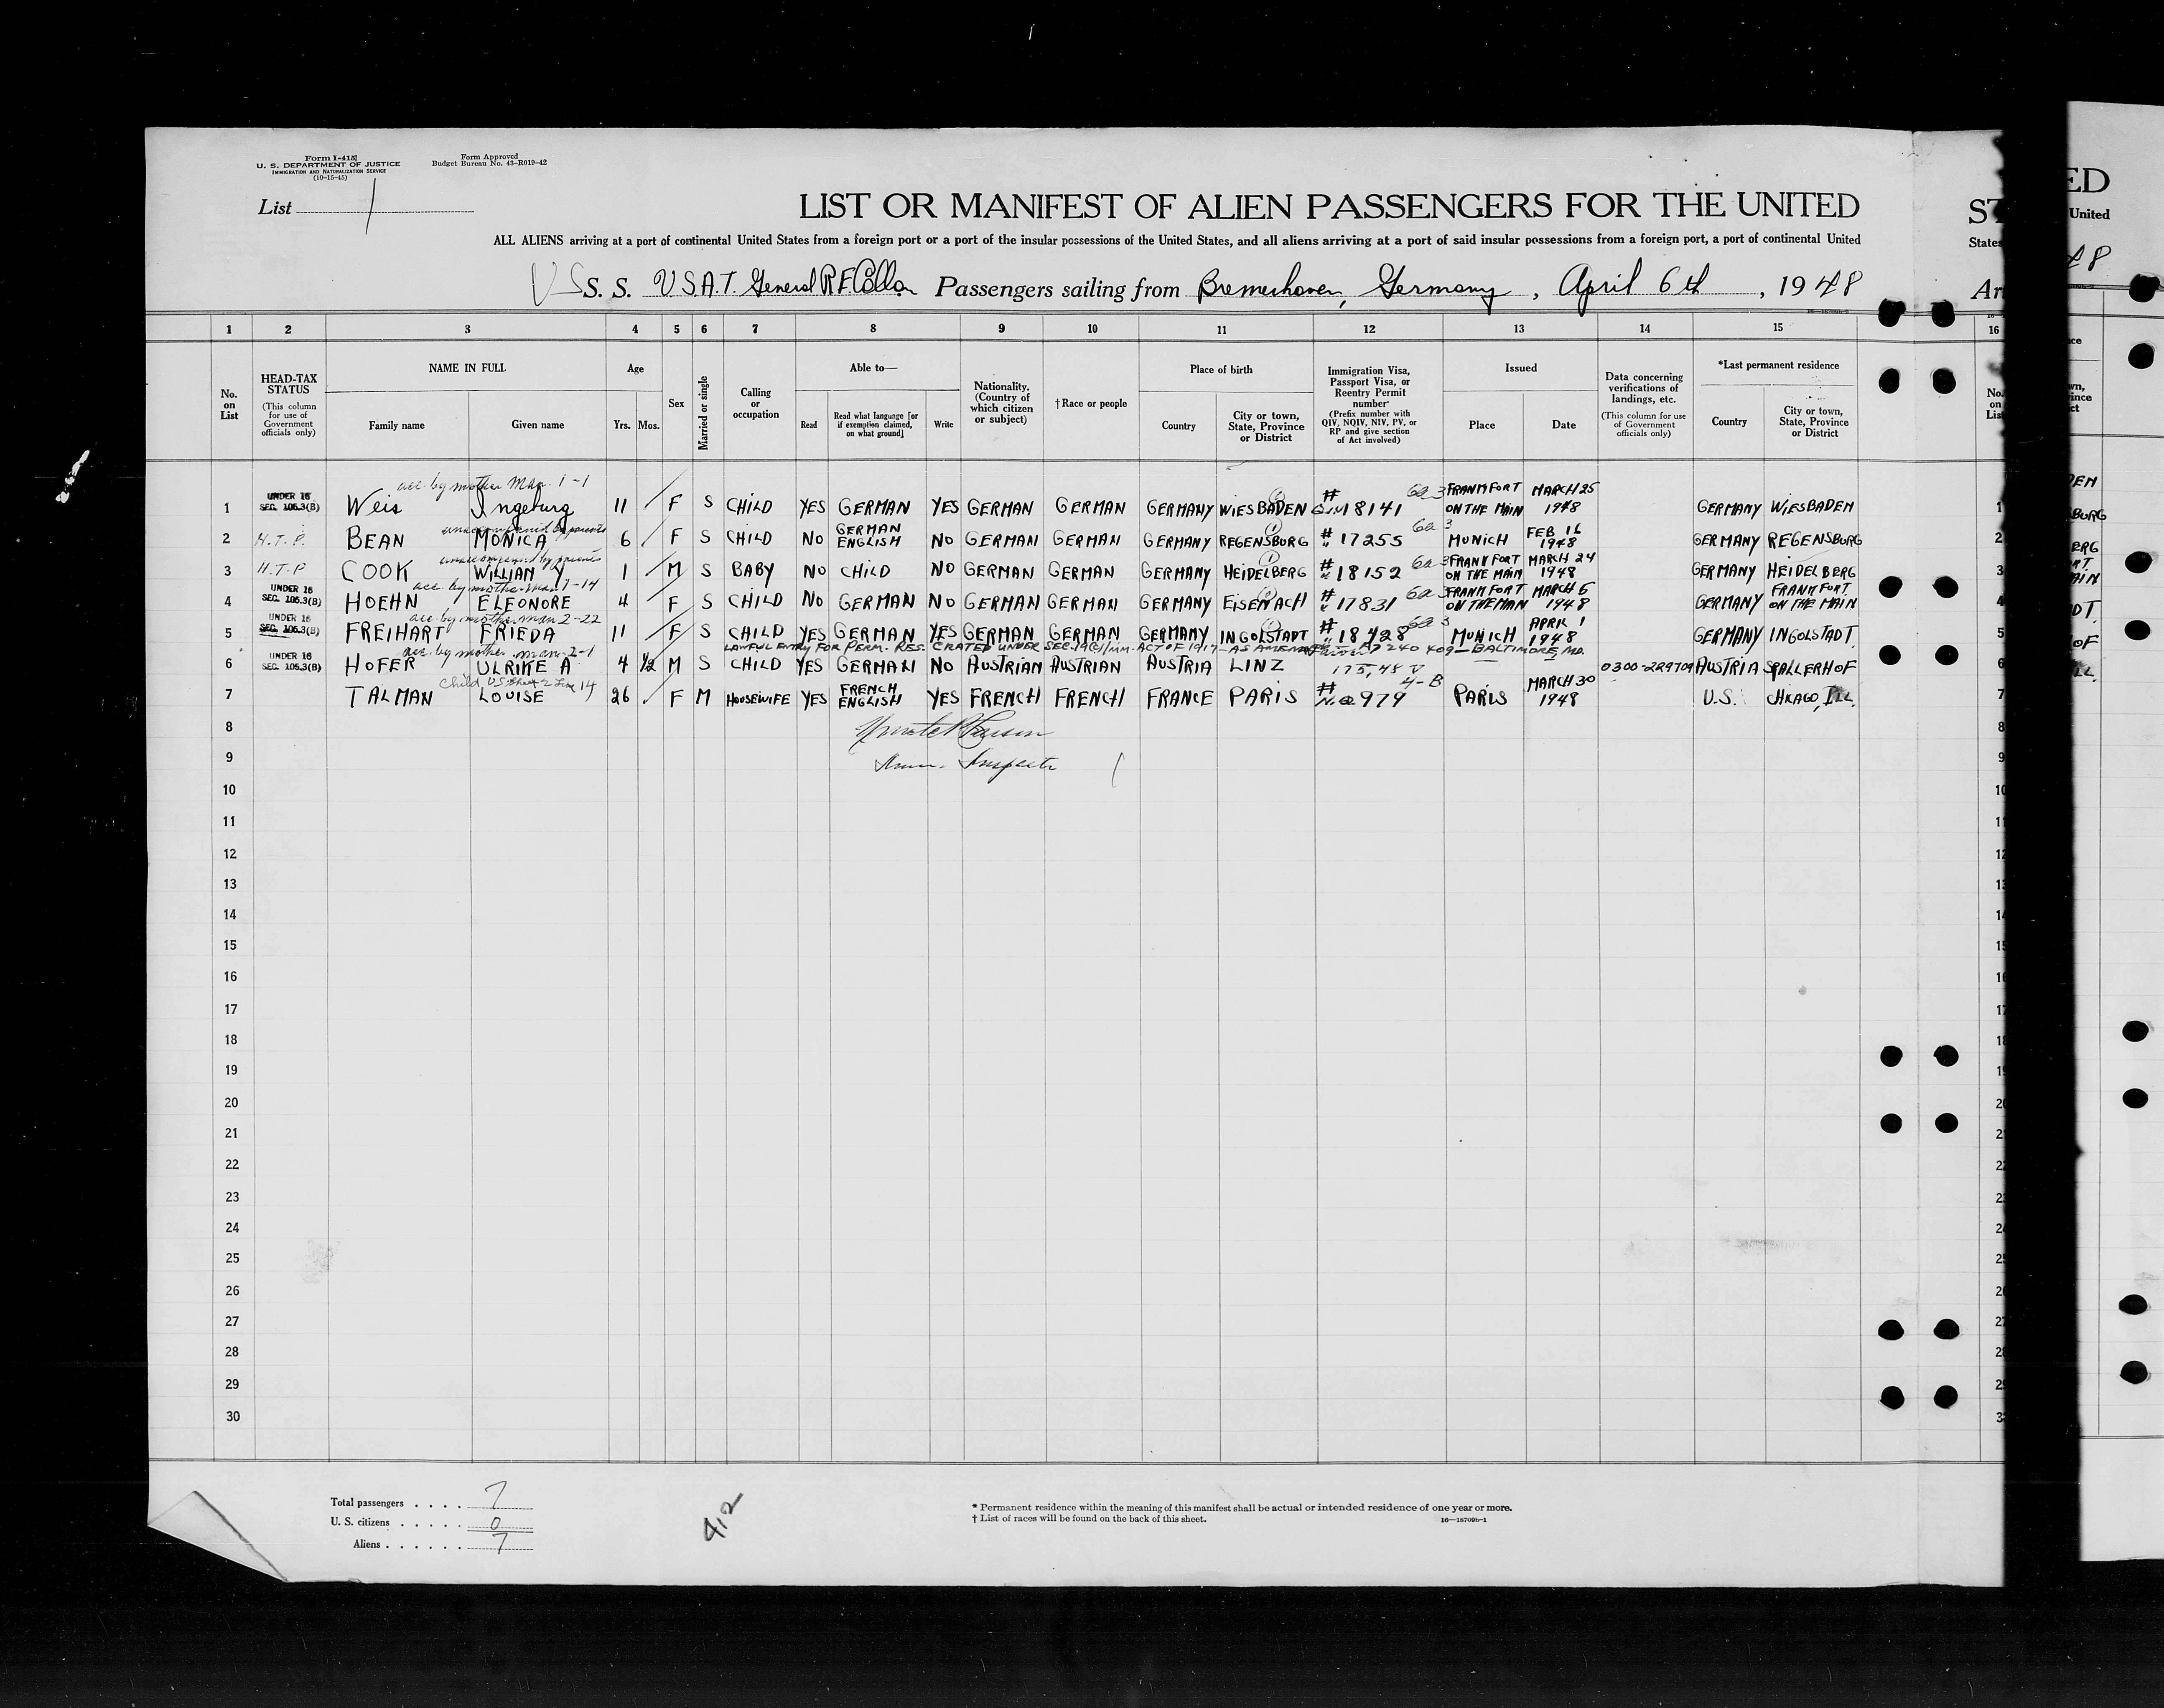 Form I-415
U. S. DEPARTMENT OF JUSTICE
IMMIGRATION AND NATURALIZATION SERVICE
(10-15-45)
Form Approved
Budget Bureau No. 43-R019-42
List 1
LIST OR MANIFEST OF ALIEN PASSENGERS FOR THE UNITED
ALL ALIENS arriving at a port of continental United States from a foreign port or a port of the insular possessions of the United States, and all aliens arriving at a port of said insular possessions from a foreign port, a port of continental United
S. S. U.S.A.T. General R.E. Passengers sailing from Bremerhaven, Germany, April 6th, 1948
1 2 3 4 5 6 7 8 9 10 11 12 13 14 15
No. on List
HEAD-TAX STATUS
(This column for use of Government officials only)
NAME IN FULL
Family name Given name
Age
Yrs. Mos.
Sex
Married or single
Calling or occupation
Able to—
Read
Read what language [or if exemption claimed, on what ground]
Write
Nationality. (Country of which citizen or subject)
†Race or people
Place of birth
Country
City or town, State, Province or District
Immigration Visa, Passport Visa, or Reentry Permit number
(Prefix number with QIV, NQIV, NIV, PV, or RP and give section of Act involved)
Issued
Place Date
Data concerning verifications of landings, etc.
(This column for use of Government officials only)
*Last permanent residence
Country
City or town, State, Province or District
acc. by mother Man. 1-1
1 UNDER 16 SEC. 105.3(B) Weis Ingeburg 11 F S CHILD YES GERMAN YES GERMAN GERMAN GERMANY WIESBADEN # 18141 6a3 FRANKFORT ON THE MAIN MARCH 25 1948 GERMANY WIESBADEN
unaccompanied by parents
2 H.T.P. BEAN MONICA 6 F S CHILD NO GERMAN ENGLISH NO GERMAN GERMAN GERMANY REGENSBURG # 17255 6a3 MUNICH FEB 16 1948 GERMANY REGENSBURG
unaccompanied by parents
3 H.T.P COOK WILLIAN Y 1 M S BABY NO CHILD NO GERMAN GERMAN GERMANY HEIDELBERG # 18152 6a3 FRANKFORT ON THE MAIN MARCH 24 1948 GERMANY HEIDELBERG
acc. by mother Man. 1-14
4 UNDER 16 SEC. 105.3(B) HOEHN ELEONORE 4 F S CHILD NO GERMAN NO GERMAN GERMAN GERMANY EISENACH # 17831 6a3 FRANKFORT ON THE MAN MARCH 5 1948 GERMANY FRANKFORT ON THE MAIN
acc. by mother man 2-22
5 UNDER 16 SEC. 105.3(B) FREIHART FRIEDA 11 F S CHILD YES GERMAN YES GERMAN GERMAN GERMANY INGOLSTADT # 18428 6a3 MUNICH APRIL 1 1948 GERMANY INGOLSTADT
LAWFUL ENTRY FOR PERM. RES. CRATED UNDER SEC. 19(c) IMM. ACT OF 1917 – AS AMENDED – A7 240 409 – BALTIMORE, MD.
acc. by mother man. 2-1
6 UNDER 16 SEC. 105.3(B) HOFER ULRIKE A 4 1/2 M S CHILD YES GERMAN NO AUSTRIAN AUSTRIAN AUSTRIA LINZ 0300-229709 AUSTRIA SPALLERHOF
Child US Sheet 2 Line 14
7 TALMAN LOUISE 26 F M HOUSEWIFE YES FRENCH ENGLISH YES FRENCH FRENCH FRANCE PARIS # 979 4-B PARIS MARCH 30 1948 U.S. CHICAGO, ILL.
8
Inspector
9
10
11
12
13
14
15
16
17
18
19
20
21
22
23
24
25
26
27
28
29
30
Total passengers . . . . 7
U. S. citizens . . . . . 0
Aliens . . . . . . 7
412
* Permanent residence within the meaning of this manifest shall be actual or intended residence of one year or more.
† List of races will be found on the back of this sheet.
16—18709b-1